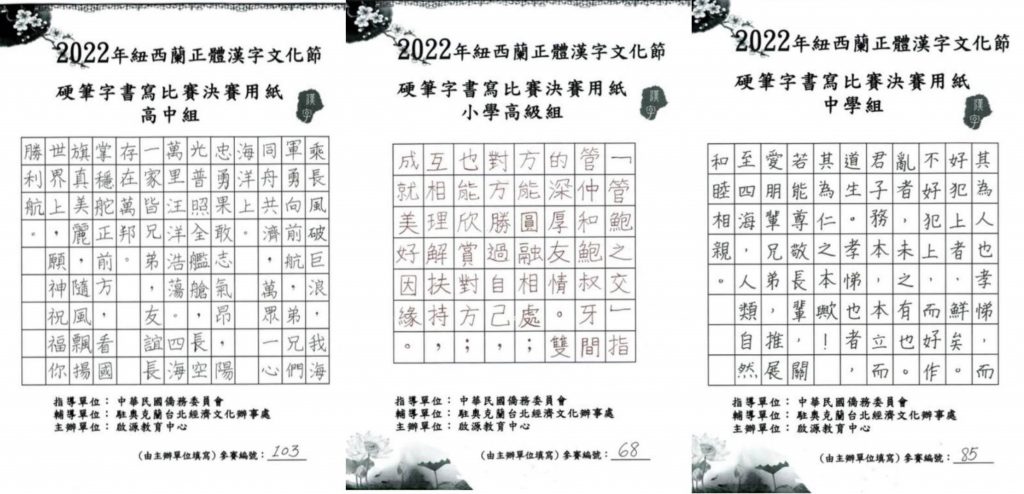 2022年紐西蘭正體漢字文化節
硬筆字書寫比賽決賽用紙
高中組
漢字
乘長風破巨浪，我海
軍勇向前航，弟兄們
同舟共濟，萬眾一心
海洋上。
忠勇果敢志氣昂，陽
光普照全艦艙，長空
萬里汪洋浩蕩。四海
一家皆兄弟，友誼長
存在萬邦。
掌穩舵正前方，看國
旗真美麗隨風飄揚
世界上，願神祝福你
勝利航。
指導單位：中華民國僑務委員會
輔導單位：駐奧克蘭台北經濟文化辦事處
主辦單位：啟源教育中心
(由主辦單位填寫)參賽編號：103
2022年紐西蘭正體漢字文化節
硬筆字書寫比賽決賽用紙
小學高級組
漢字
「管鮑之交」指
管仲和鮑叔牙間
的深厚友情。雙
方能圓融相處；
對方勝過自己，
也能欣賞對方；
互相理解扶持，
成就美好因緣。
指導單位：中華民國僑務委員會
輔導單位：駐奧克蘭台北經濟文化辦事處
主辦單位：啟源教育中心
(由主辦單位填寫)參賽編號：68
2022年紐西蘭正體漢字文化節
硬筆字書寫比賽決賽用紙
中學組
漢字
其為人也孝悌，而
好犯上者，鮮矣。
不好犯上，而好作
亂者，未之有也。
君子務本，本立而
道生。孝悌也者，
其為仁之本歟！
若能尊敬長輩，關
愛朋輩兄弟，推展
至四海人類，自然
和睦相親。
指導單位：中華民國僑務委員會
輔導單位：駐奧克蘭台北經濟文化辦事處
主辦單位：啟源教育中心
(由主辦單位填寫)參賽編號：85